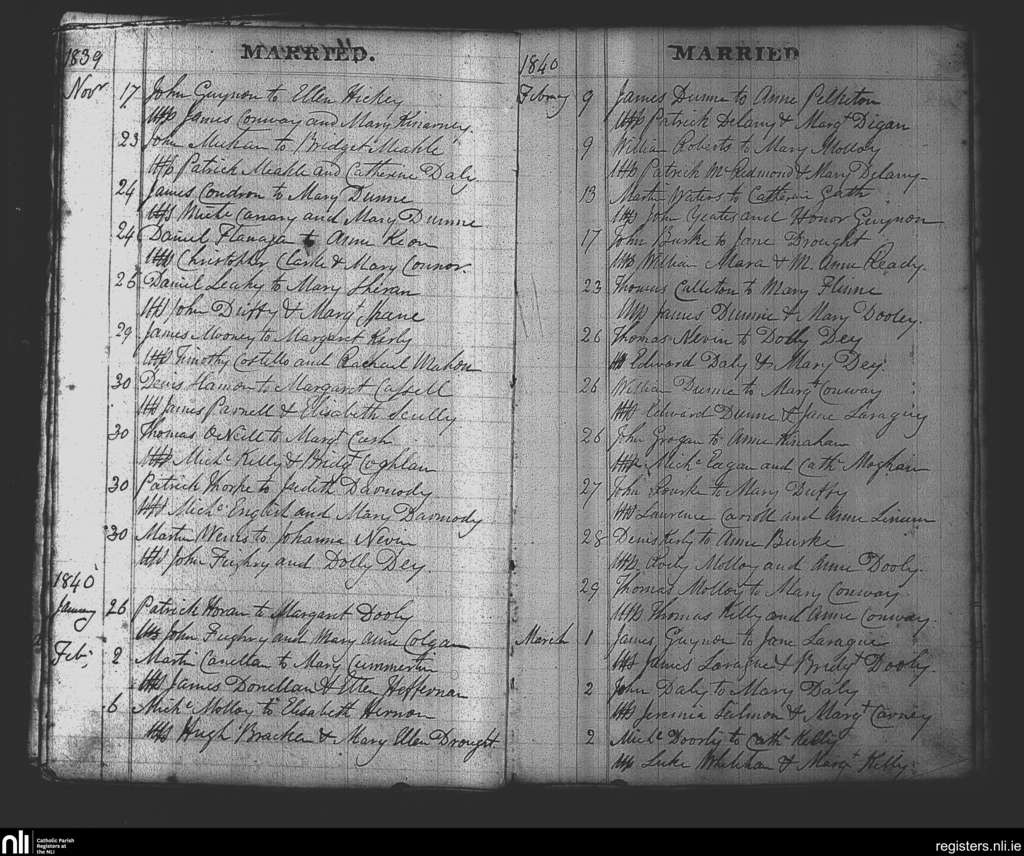 1839
MARRIED.
Novr 17 John Guynon to Ellen Hickey
Wits James Conway and Mary Kinarney.
23 John Meehan to Bridget Meahle
Wits Patrick Meahle and Catherine Daly
24 James Condron to Mary Dunne
Wits Michl Canary and Mary Dunne
24 Daniel Flanagan to Anne Keon
Wits Christopher Clarke & Mary Connor.
26 Daniel Leahy to Mary Sheran
Wits John Duffy & Margt Spane
29 James Mooney to Margaret Kerly
Wits Timothy Costello and Racheul Mahon
30 Denis Hamon to Margaret Cassell
Wits James Parnell & Elisabeth Scully
30 Thomas ONeill to Margt Cash
Wits Michl Kelly & Bridgt Coghlan
30 Patrick Thorpe to Judith Darmody
Wits Michl English and Mary Darmody
30 Martin to Johanna Nevin
Wits John Fughry and Dolly Dey.
1840
January 26 Patrick Horan to Margaret Dooly
Wits John Fughry and Mary Anne Colgan
Feby 2 Martin Canellan to Mary Cummertin
Wits James Donellan & Ellen Heffernan
6 Michl Molloy to Elisabeth Hernon
Wits Hugh Bracken & Mary Ellen Drought.
1840
MARRIED
Febray 9 James Dunne to Anne Pelketon
Wits Patrick Delany & Margt Digan
9 William Roberts to Mary Molloy
Wits Patrick McRedmond & Mary Delany
13 Martin Waters to Catherine Gath
Wits John Yeates and Honor Guynon
17 John Burke to Jane Drought
Wits William Mara & M. Anne Ready.
23 Thomas Culleton to Mary Flinne
Wits James Dunne & Mary Dooley.
26 Thomas Nevin to Dolly Dey
Wits Edward Daly & Mary Dey
26 William Dunne to Margt Conway
Wits Edward Dunne & Jane Laraguy
26 John Grogan to Anne Kinahan
Wits Michl Eagan and Cath Moghan
27 John Rourke to Mary Duffy
Wits Laurence Carroll and Anne Linum
28 Denis Kerly to Anne Burke
Wits Rody Molloy and Anne Dooly.
29 Thomas Molloy to Mary Conway
Wits Thomas Kelly and Anne Conway.
March 1 James Guynon to Jane Laragué
Wits James Laragué & Bridgt Dooly
2 John Daly to Mary Daly
Wits Jeremia Sealmon & Margt Carney
2 Michl Doorly to Cath Kelly
Wits Luke Whelehan & Margt Kelly.
nli
Catholic Parish
Registers at
the NLI
registers.nli.ie